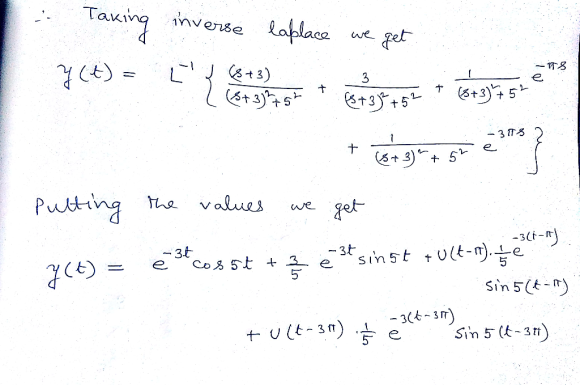 ∴ Taking inverse laplace we get
y(t) = L⁻¹ { (s+3)/((s+3)²+5²) + 3/((s+3)²+5²) + 1/((s+3)²+5²) e^(-πs)
+ 1/((s+3)²+5²) e^(-3πs) }
Putting the values we get
y(t) = e^(-3t) cos5t + 3/5 e^(-3t) sin5t + U(t-π).1/5 e^(-3(t-π))
sin5(t-π)
+ U(t-3π) . 1/5 e^(-3(t-3π)) sin5(t-3π)